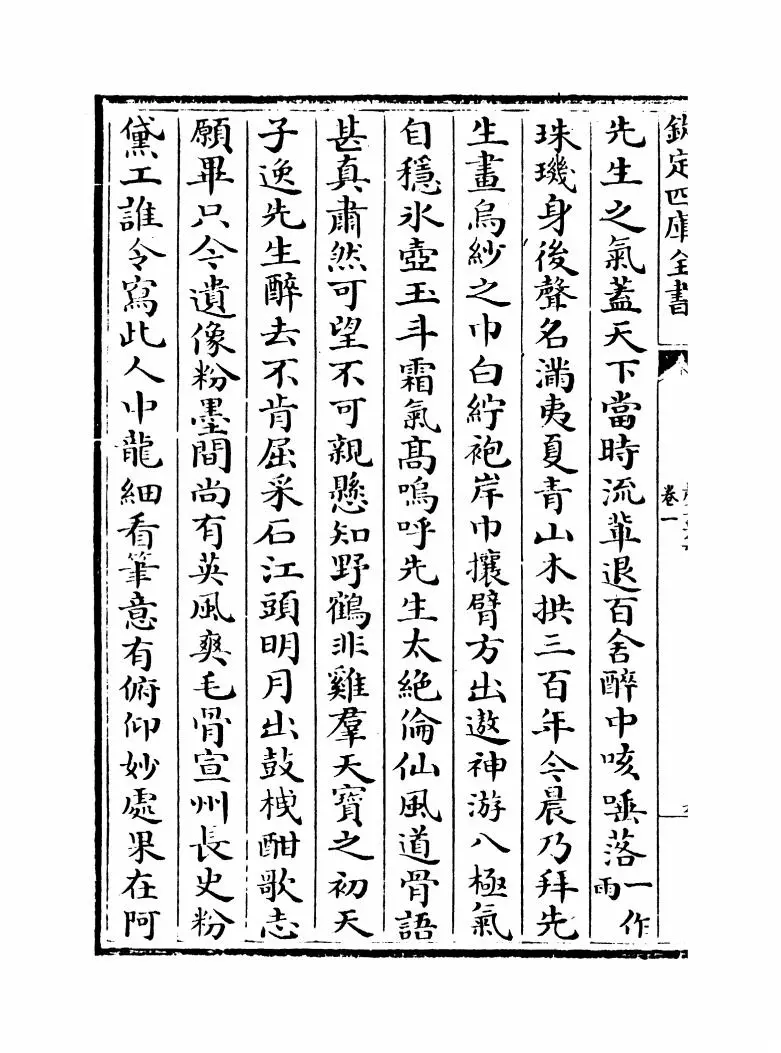 欽定四庫全書
卷一
先生之氣蓋天下當時流輩退百舍醉中咳唾落一作雨
珠璣身後聲名滿夷夏青山木拱三百年今晨乃拜先
生畫烏紗之巾白紵袍岸巾攘臂方出遨神游八極氣
自穩氷壺玉斗霜氣髙嗚呼先生太絶倫仙風道骨語
甚真肅然可望不可親懸知野鶴非雞羣天寶之初天
子逸先生醉去不肯屈采石江頭明月出鼓枻酣歌志
願畢只今遺像粉墨間尚有英風爽毛骨宣州長史粉
黛工誰令寫此人中龍細看筆意有俯仰妙處果在阿